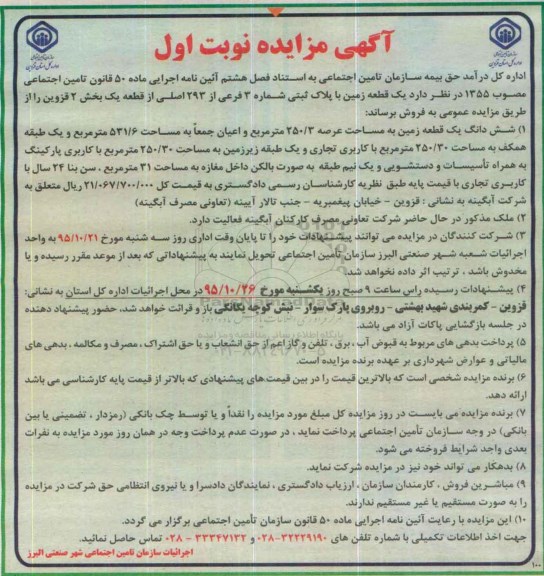 آگهی مزایده نوبت اول
اداره کل درآمد حق بیمه سازمان تامین اجتماعی به استناد فصل هشتم آئین نامه اجرایی ماده ۵۰ قانون تامین اجتماعی
مصوب ۱۳۵۵ در نظر دارد یک قطعه زمین با پلاک ثبتی شماره ۳ فرعی از ۲۹۳ اصلی از قطعه یک بخش ۲ قزوین را از
طریق مزایده عمومی به فروش برساند:
۱) شش دانگ یک قطعه زمین به مساحت عرصه ۲۵۰/۳ مترمربع و اعیان جمعاً به مساحت ۵۳۱/۶ مترمربع و یک طبقه
همکف به مساحت ۲۵۰/۳۰ مترمربع با کاربری تجاری و یک طبقه زیرزمین به مساحت ۲۵۰/۳۰ مترمربع با کاربری پارکینگ
به همراه تأسیسات و دستشویی و یک نیم طبقه به صورت بالکن داخل مغازه به مساحت ۳۱ مترمربع ، سن بنا ۲۴ سال با
کاربری تجاری با قیمت پایه طبق نظریه کارشناسان رسمی دادگستری به قیمت کل ۲۱/۰۶۷/۷۰۰/۰۰۰ ریال متعلق به
شرکت آبگینه به نشانی : قزوین - خیابان پیغمبریه - جنب تالار آیینه (تعاونی مصرف آبگینه)
۲) ملک مذکور در حال حاضر شرکت تعاونی مصرف کارکنان آبگینه فعالیت دارد.
۳) شرکت کنندگان در مزایده می توانند پیشنهادات خود را تا پایان وقت اداری روز سه شنبه مورخ ۹۵/۱۰/۲۱ به واحد
اجرائیات شعبه شهر صنعتی البرز سازمان تأمین اجتماعی تحویل نمایند به پیشنهاداتی که بعد از موعد مقرر رسیده و یا
مخدوش باشد ، ترتیب اثر داده نخواهد شد.
۴) پیشنهادات رسیده راس ساعت ۹ صبح روز یکشنبه مورخ ۹۵/۱۰/۲۶ در محل اجرائیات اداره کل استان به نشانی:
قزوین - کمربندی شهید بهشتی - روبروی پارک سوار - نبش کوچه یگانگی باز و قرائت خواهد شد. حضور پیشنهاد دهنده
در جلسه بازگشایی پاکات آزاد می باشد.
۵) پرداخت بدهی های مربوط به قبوض آب ، برق ، تلفن و گاز اعم از حق انشعاب و یا حق اشتراک ، مصرف و مکالمه ، بدهی های
مالیاتی و عوارض شهرداری بر عهده برنده مزایده است.
۶) برنده مزایده شخصی است که بالاترین قیمت را در بین قیمت های پیشنهادی که بالاتر از قیمت پایه کارشناسی می باشد
ارائه دهد.
۷) برنده مزایده می بایست در روز مزایده کل مبلغ مورد مزایده را نقداً و یا توسط چک بانکی (رمزدار ، تضمینی یا بین
بانکی) در وجه سازمان تأمین اجتماعی پرداخت نماید ، در صورت عدم پرداخت وجه در همان روز مورد مزایده به نفرات
بعدی واجد شرایط فروخته می شود.
۸) بدهکار می تواند خود نیز در مزایده شرکت نماید.
۹) مباشرین فروش ، کارمندان سازمان ، ارزیاب دادگستری ، نمایندگان دادسرا و یا نیروی انتظامی حق شرکت در مزایده
را به صورت مستقیم یا غیر مستقیم ندارند.
۱۰) این مزایده با رعایت آئین نامه اجرایی ماده ۵۰ قانون سازمان تأمین اجتماعی برگزار می گردد.
جهت اخذ اطلاعات تکمیلی با شماره تلفن های ۳۲۲۲۹۱۹۰-۰۲۸ و ۳۳۳۴۷۱۳۲ - ۰۲۸ تماس حاصل نمائید.
اجرائیات سازمان تامین اجتماعی شهر صنعتی البرز
۱۰۰